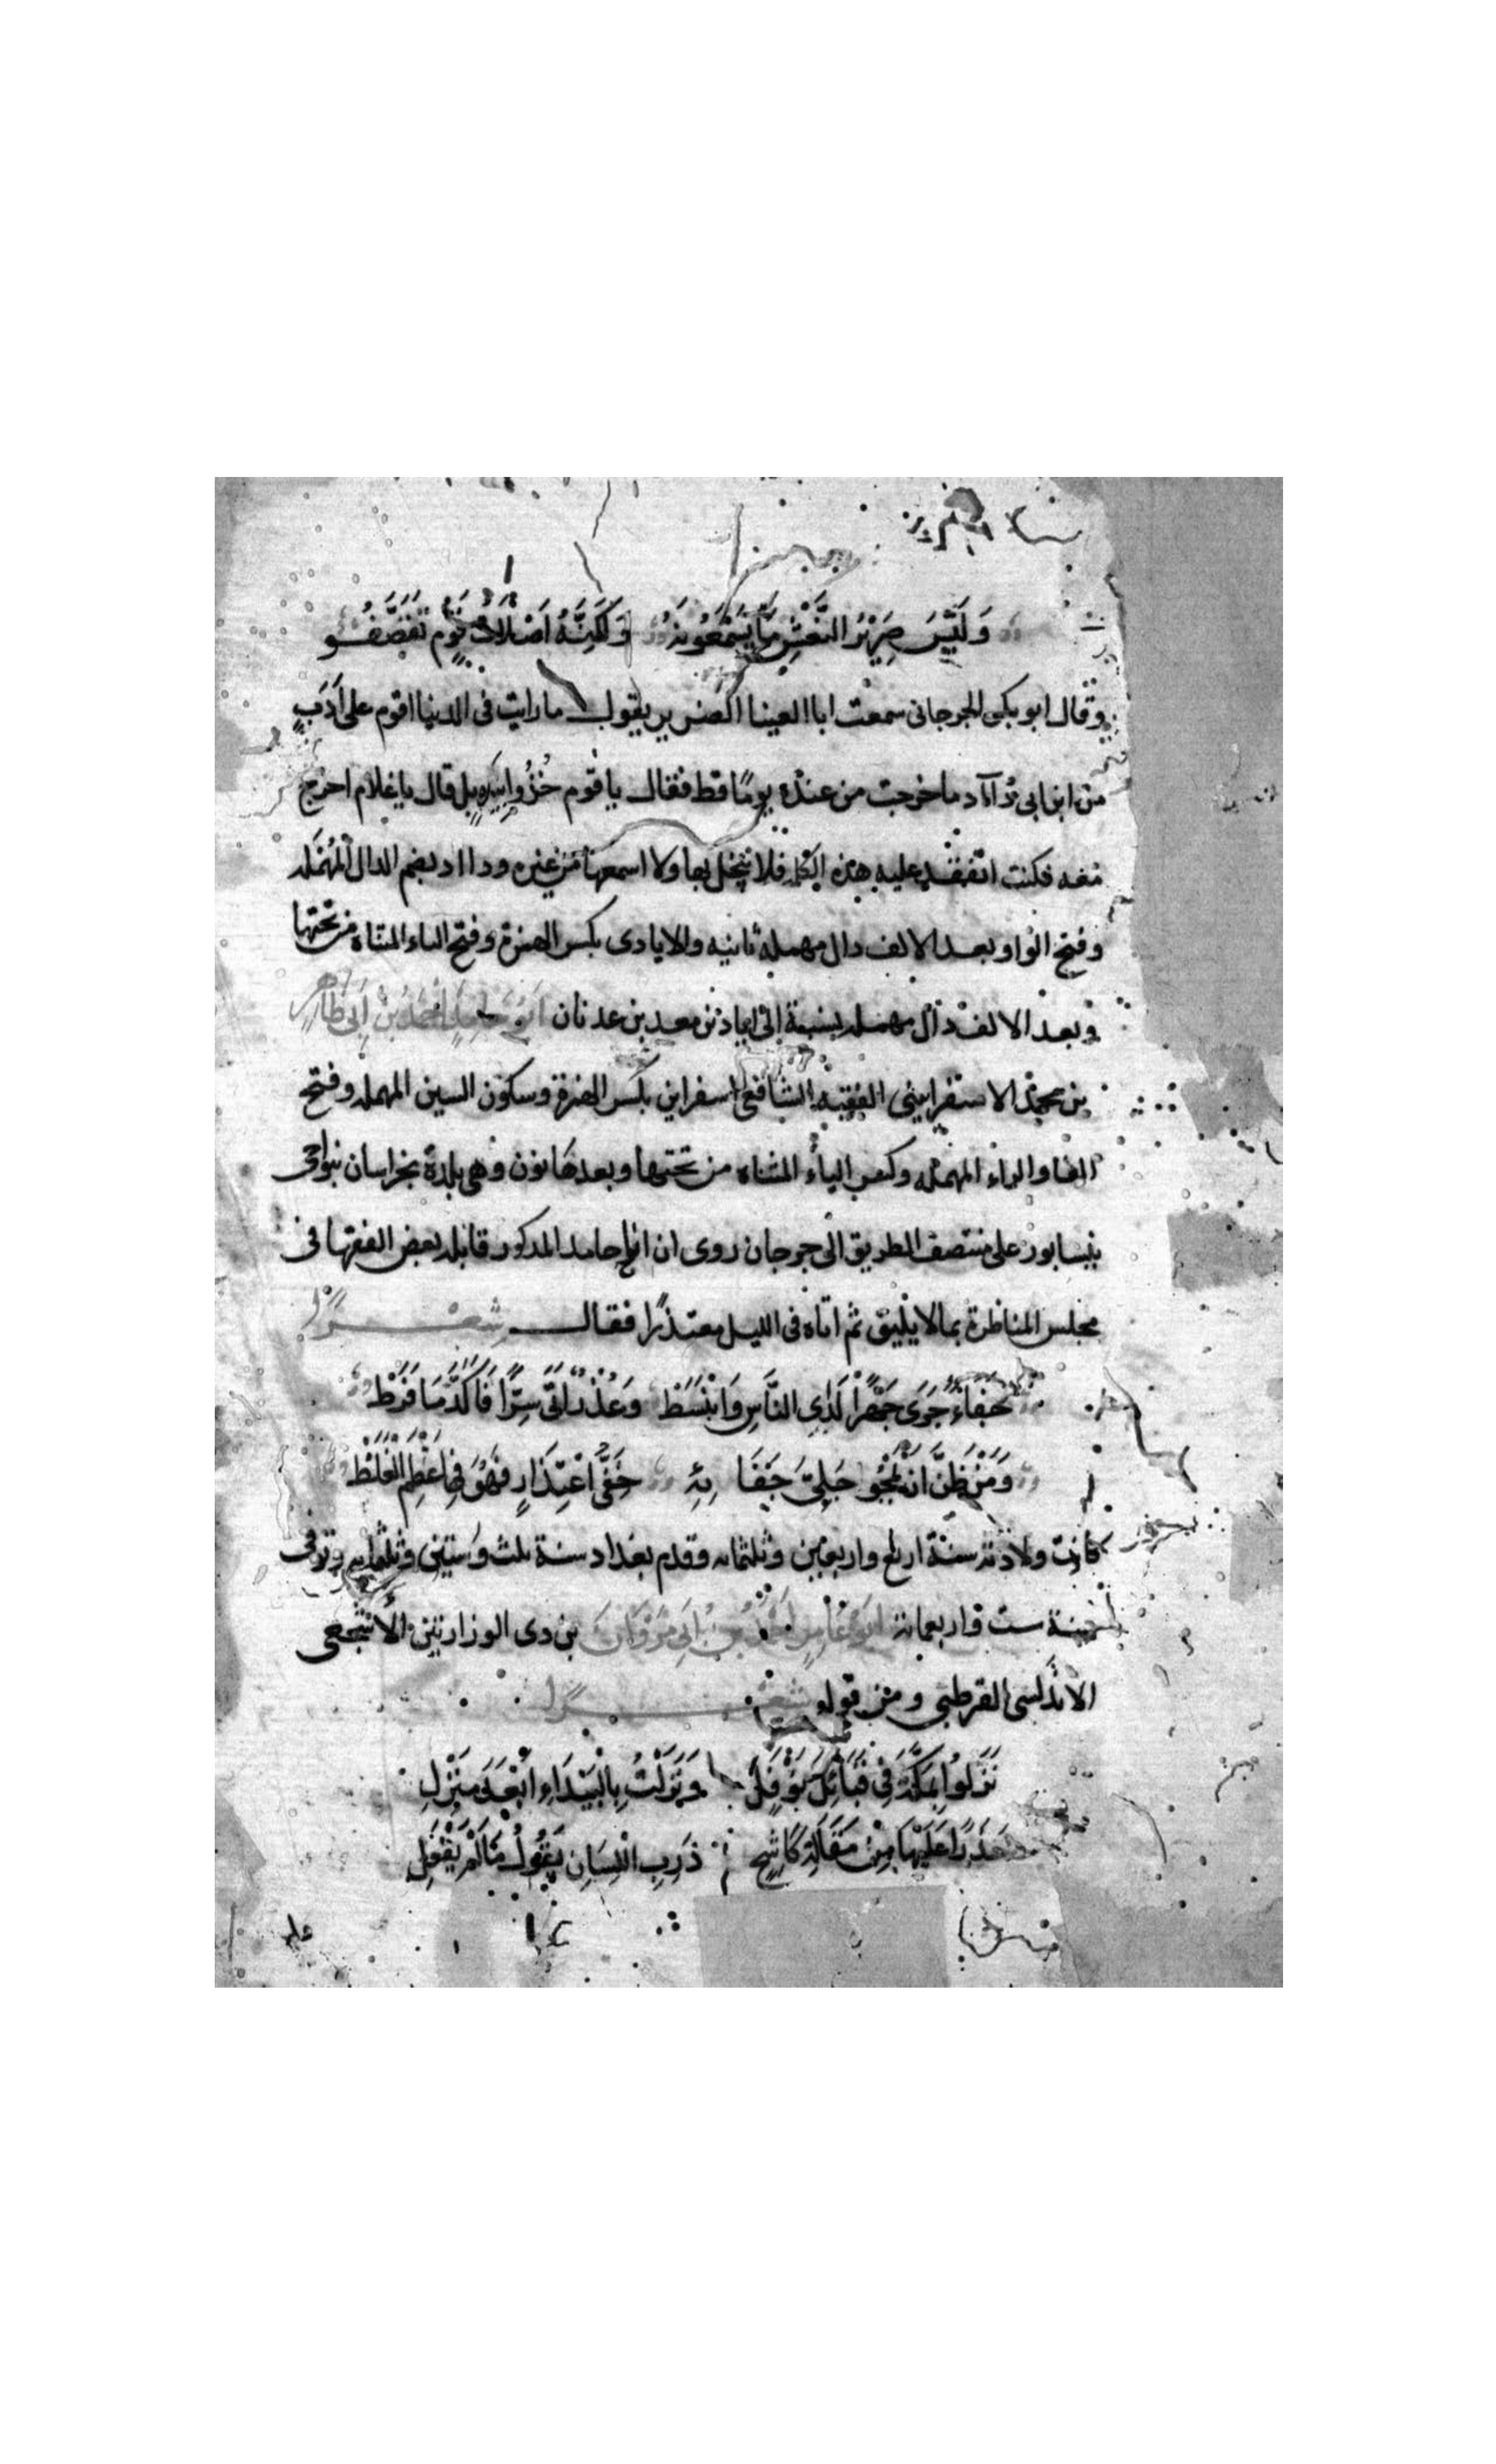 وَلَيْسَ صَرِيْرُ النَّعْشِ مَا يَسْمَعُونَهُ وَلَكِنَّهُ اَصْلَابُ قَوْمٍ تَقَصَّفُـو
وقال ابو بكر الجرجانى سمعت ابا العينا الضرير يقول ما رايت فى الدنيا اقوم على اَدَبٍ
من ابن ابى دُآاد ما خرجت من عنده يومًا قط فقال يا قوم خُذُوا بيَدِهِ بل قال يا غلام اخرج
معه فكنت اتفقد عليه هذه الكلمة فلا يخل بها ولا اسمعها من غيره ودااد بضم الدال المهمَله
وفتح الواو وبعد الالف دال مهملة ثانيه والايادى بكسر الهمزة وفتح الياء المثناه من تحتها
وبعد الالف دال مهمله نسبة إلى اياد بن معد بن عدنان اَبُو حَامِدٍ اَحْمَدُ بْنُ اَبِى طَاهِرٍ
بن محمد الاسفراينى الفقيه الشافعى اسفراين بكسر الهمزة وسكون السين المهمله وفتح
الفا والراء المهمله وكسر الياء المثناه من تحتها وبعدها نون وهى بلدة بخراسان بنواحى
نيسابور على منتصف الطريق الى جرجان روى ان ابا حامد المذكور قابله بعض الفقها فى
مجلس المناظرة بما لا يليق ثم اتاه فى الليل معتذرًا فقال شعـرًا
جَفَاءٌ جَرَى جَهْرًا لَدَى النَّاسِ وَانْبَسَطْ وَعُذْرٌ اَتَى سِرًّا فَاَكَّدَ مَا فَرَطْ
وَمَنْ ظَنَّ اَنْ يَمْحُو جَلِىَّ جَفَائِهِ خَفِىُّ اعْتِذَارٍ فَهُوَ فِى اَعْظَمِ الْغَلَطْ
كانت ولادته سنة اربع واربعين وثلثمائه وقدم بغداد سنة ثلث وستين وثلثمايه وتوفى
سنة ست واربعمائة اَبُو عَامِرٍ اَحْمَدُ بْنُ اَبِى مَرْوَانَ بن ذى الوزارتين الاشجعى
الاندلسى القرطبى ومن قوله شعـرًا
نَزَلُوا بِمَكَّةَ فِى قَبَائِلِ نَوْفَلٍ وَنَزَلْتُ بِالْبَيْدَاءِ اَبْعَدَ مَنْزِلِ
حَذَرًا عَلَيْهَا مِنْ مَقَالَةِ كَاشِحٍ ذَرِبِ اللِّسَانِ يَقُولُ مَا لَمْ يُفْعَلِ